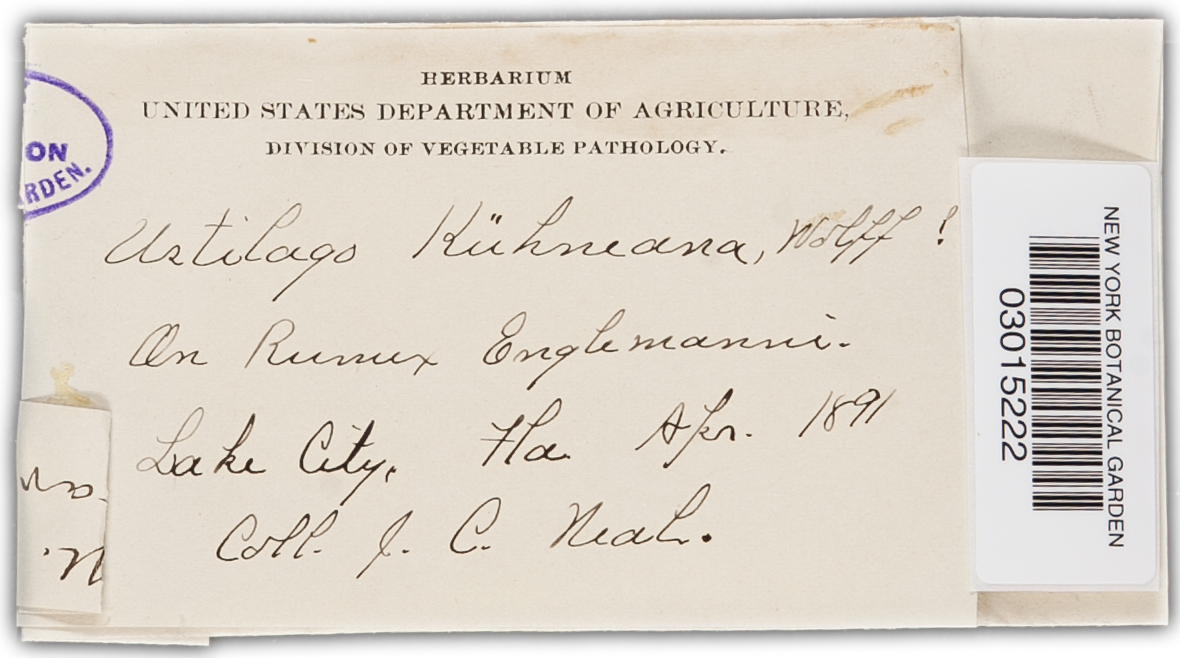 HERBARIUM
UNITED STATES DEPARTMENT OF AGRICULTURE,
DIVISION OF VEGETABLE PATHOLOGY.
ON
RDEN.
Ustilago Kühneana, Wolff !
On Rumex Englemanni.
Lake City, Fla. Apr. 1891
Coll. J. C. Neal.
NEW YORK BOTANICAL GARDEN
03015222